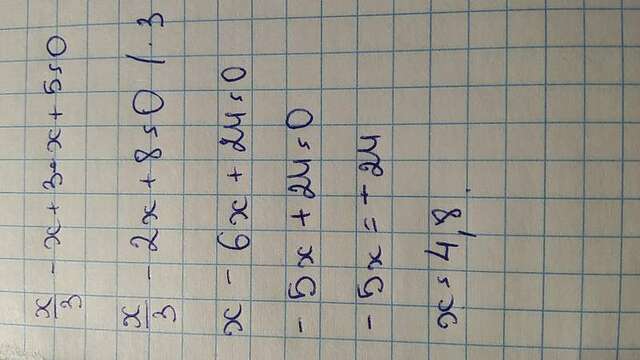 x/3 - x + 3 - x + 5 = 0
x/3 - 2x + 8 = 0 / · 3
x - 6x + 24 = 0
- 5x + 24 = 0
- 5x = - 24
x = 4,8.